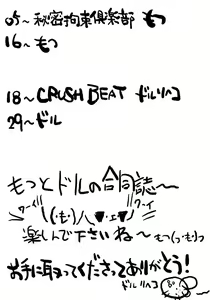 05〜秘密拘束倶楽部 もつ
16〜もつ
18〜CRUSH BEAT ドルリハコ
29〜ドル
もつとドルの合同誌〜
ワーイ ワーイ
楽しんで下さいね〜もつ(っ・む)っ
お手に取ってくださってありがとう!
ドルリハコ